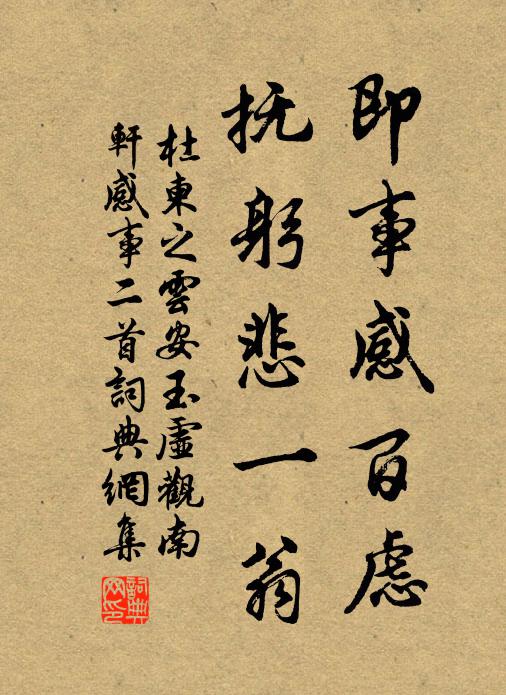 即事感百虑
抚躬悲一翁
杜東之雲安玉虛觀南
軒感事二首詞典網集
詞典
网印